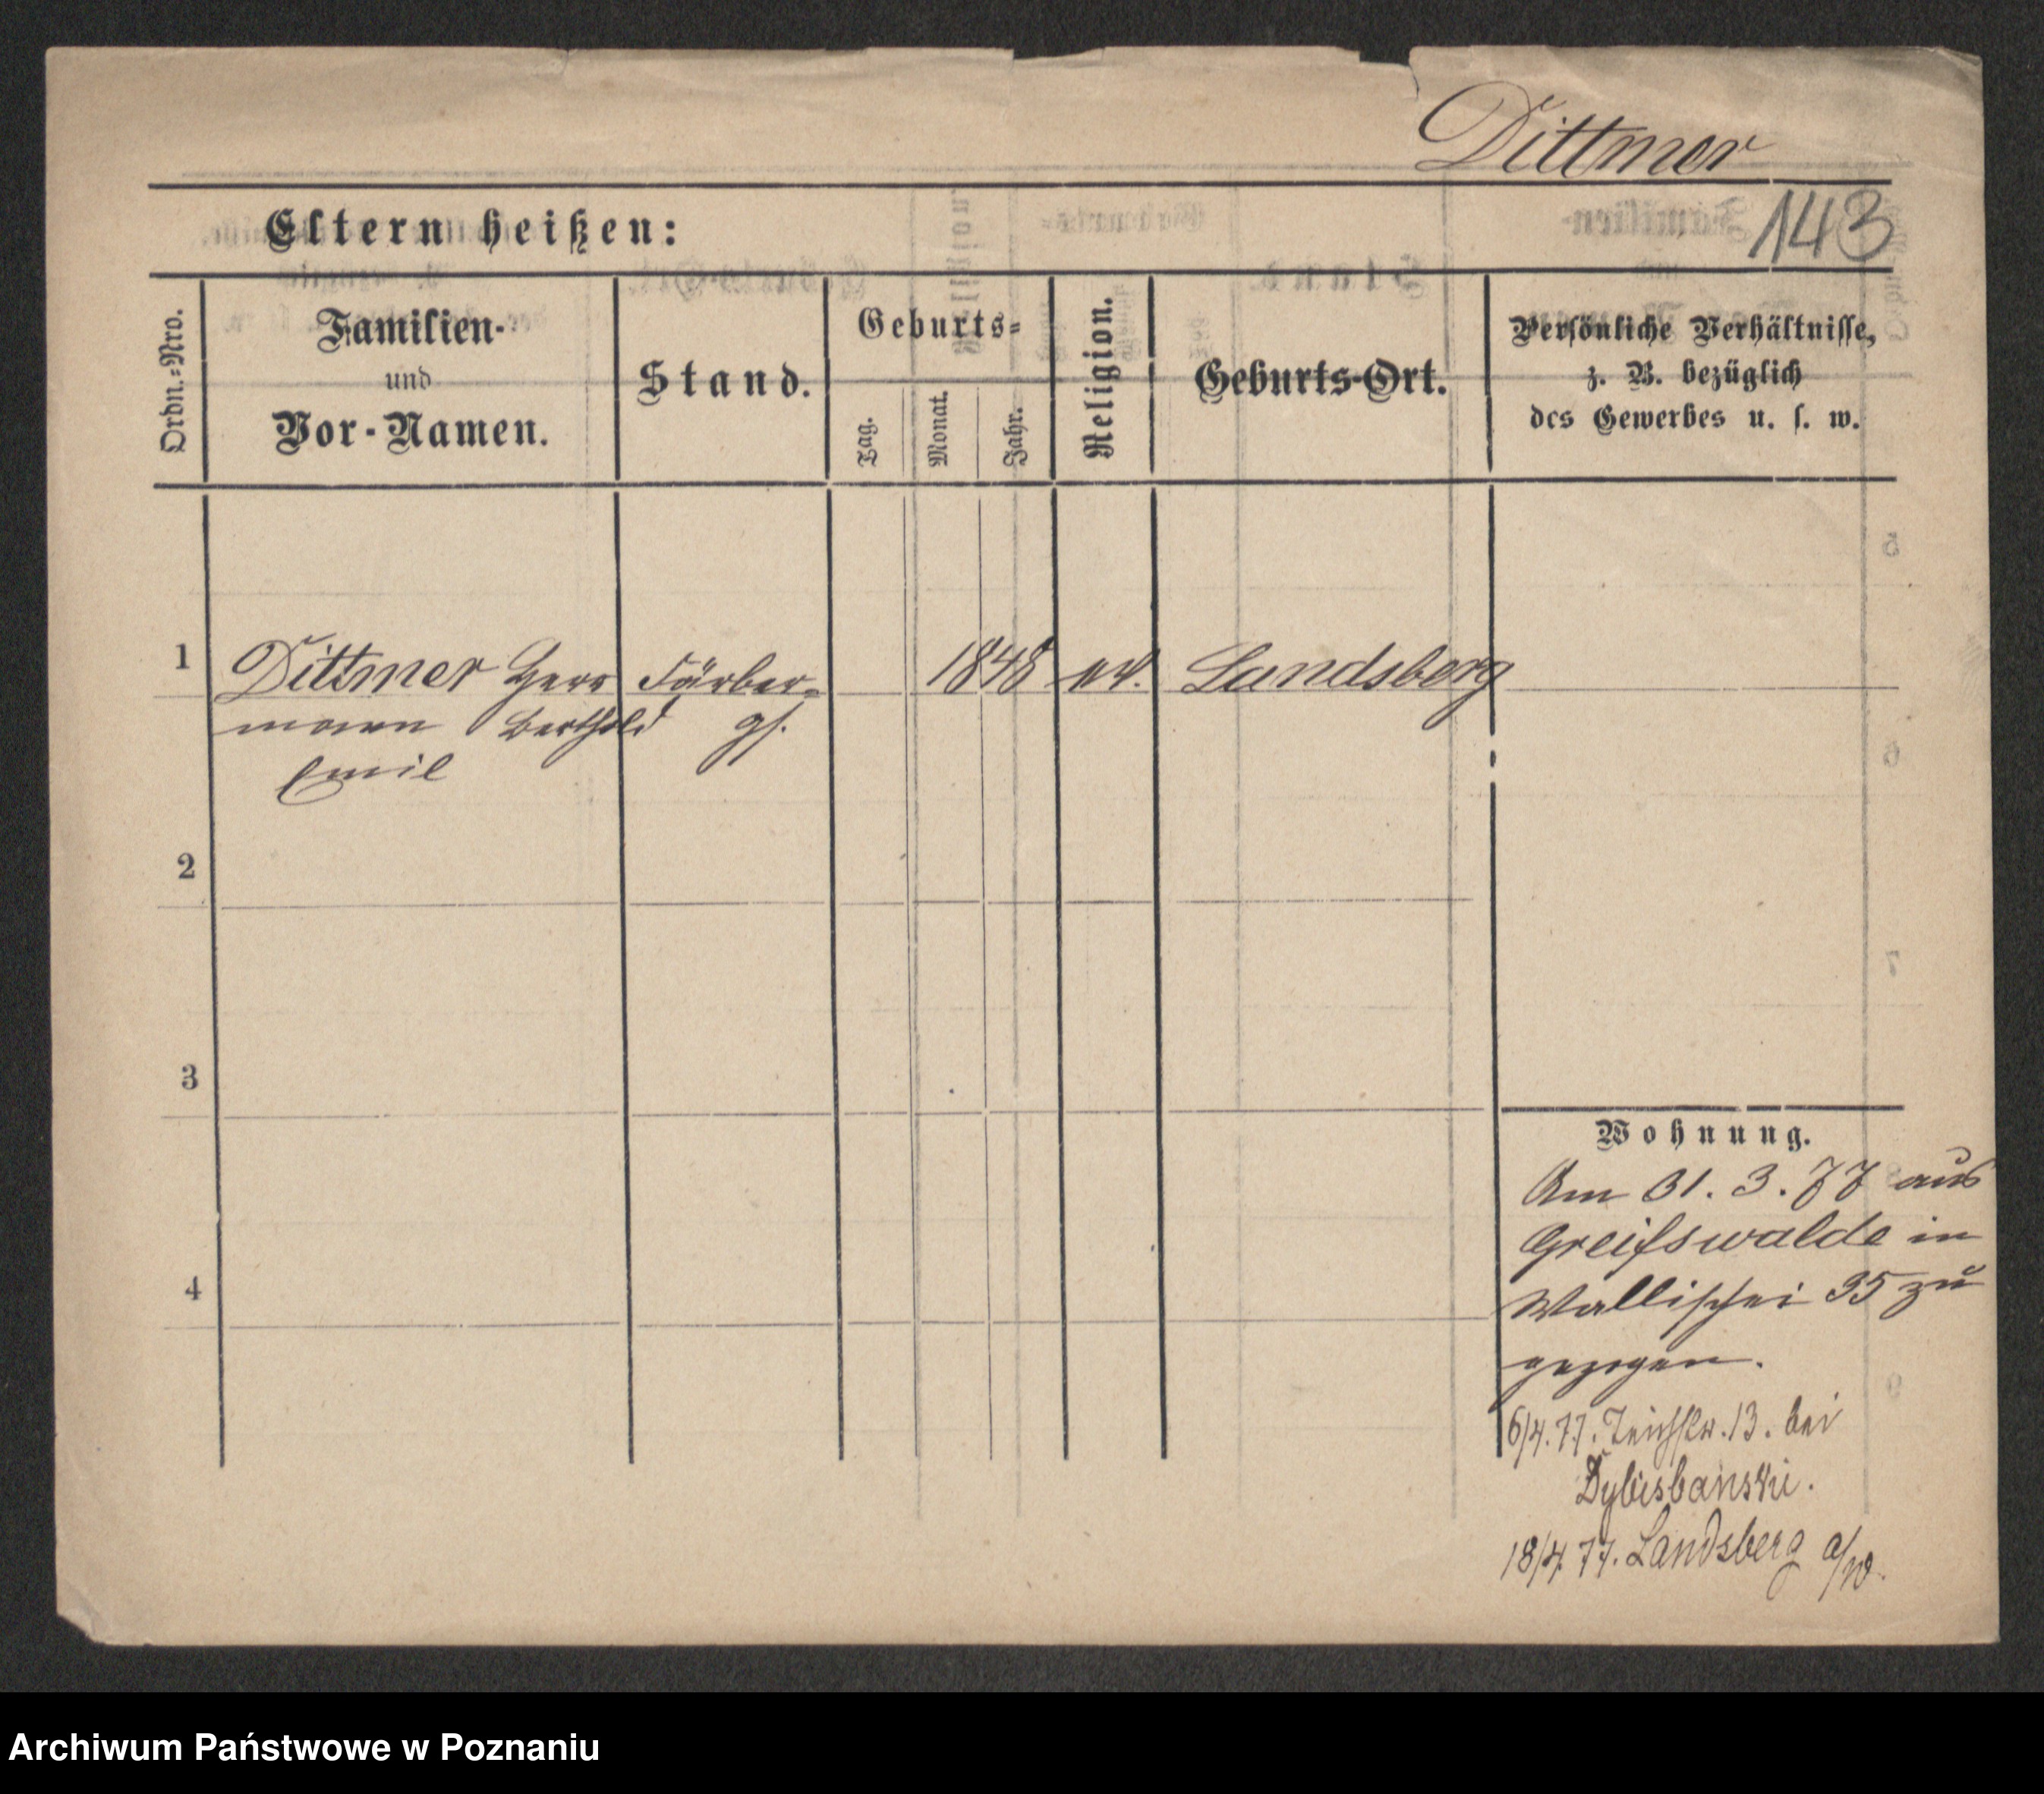 Dittmer
143
Eltern heißen:
Ordn.=Nro.
Familien-
und
Vor-Namen.
Stand.
Geburts=
Tag.
Monat.
Jahr.
Religion.
Geburts-Ort.
Persönliche Verhältnisse,
z. B. bezüglich
des Gewerbes u. s. w.
1 Dittmer Herr Färber= 1848 ev. Landsberg
mann Berthold gs.
Emil
2
3
4
Wohnung.
Am 31. 3. 77 aus
Greifswalde in
Wallischei 35 zu
gezogen.
6/4. 77. Teichstr. 13. bei
18/4 77. Landsberg a/W.
Archiwum Państwowe w Poznaniu